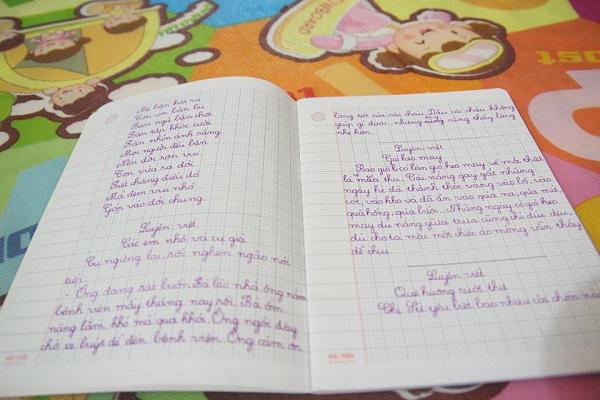 Mẹ bận hát ru
Còn con bận bú
Bận ngủ bận chơi
Bận tập khóc cười
Bận nhìn ánh sáng.
Mọi người đều bận
Nên đời rộn vui
Con vừa ra đời
Biết chăng điều đó
Mà đem vui nhỏ
Góp vào đời chung.
Luyện viết
Các em nhỏ và cụ già
Cụ ngừng lại, rồi nghẹn ngào nói
tiếp:
- Ông đang rất buồn. Bà lão nhà ông nằm
bệnh viện mấy tháng nay rồi. Bà ốm
nặng lắm, khó mà qua khỏi. Ông ngồi đây
chờ xe buýt để đến bệnh viện. Ông cảm ơn
lòng tốt của các cháu. Dẫu các cháu không
giúp gì được, nhưng ông cũng thấy lòng
nhẹ hơn.
Luyện viết
Gió heo may
Bao giờ có làn gió heo may về mới thật
là mùa thu. Cái nắng gay gắt những
ngày hè đã thành thóc vàng vào bồ, vào
cót, vào kho và đã ẩn vào quả na, quả mít,
quả hồng, quả bưởi... Những ngày có gió heo
may dù nắng giữa trưa cũng chỉ dìu dịu,
đủ cho ta mặc một chiếc áo mỏng vẫn thấy
dễ chịu.
Luyện viết
Quê hương ruột thịt
Chị Sứ yêu biết bao nhiêu cái chốn này
HẢI TIẾN
HẢI TIẾN